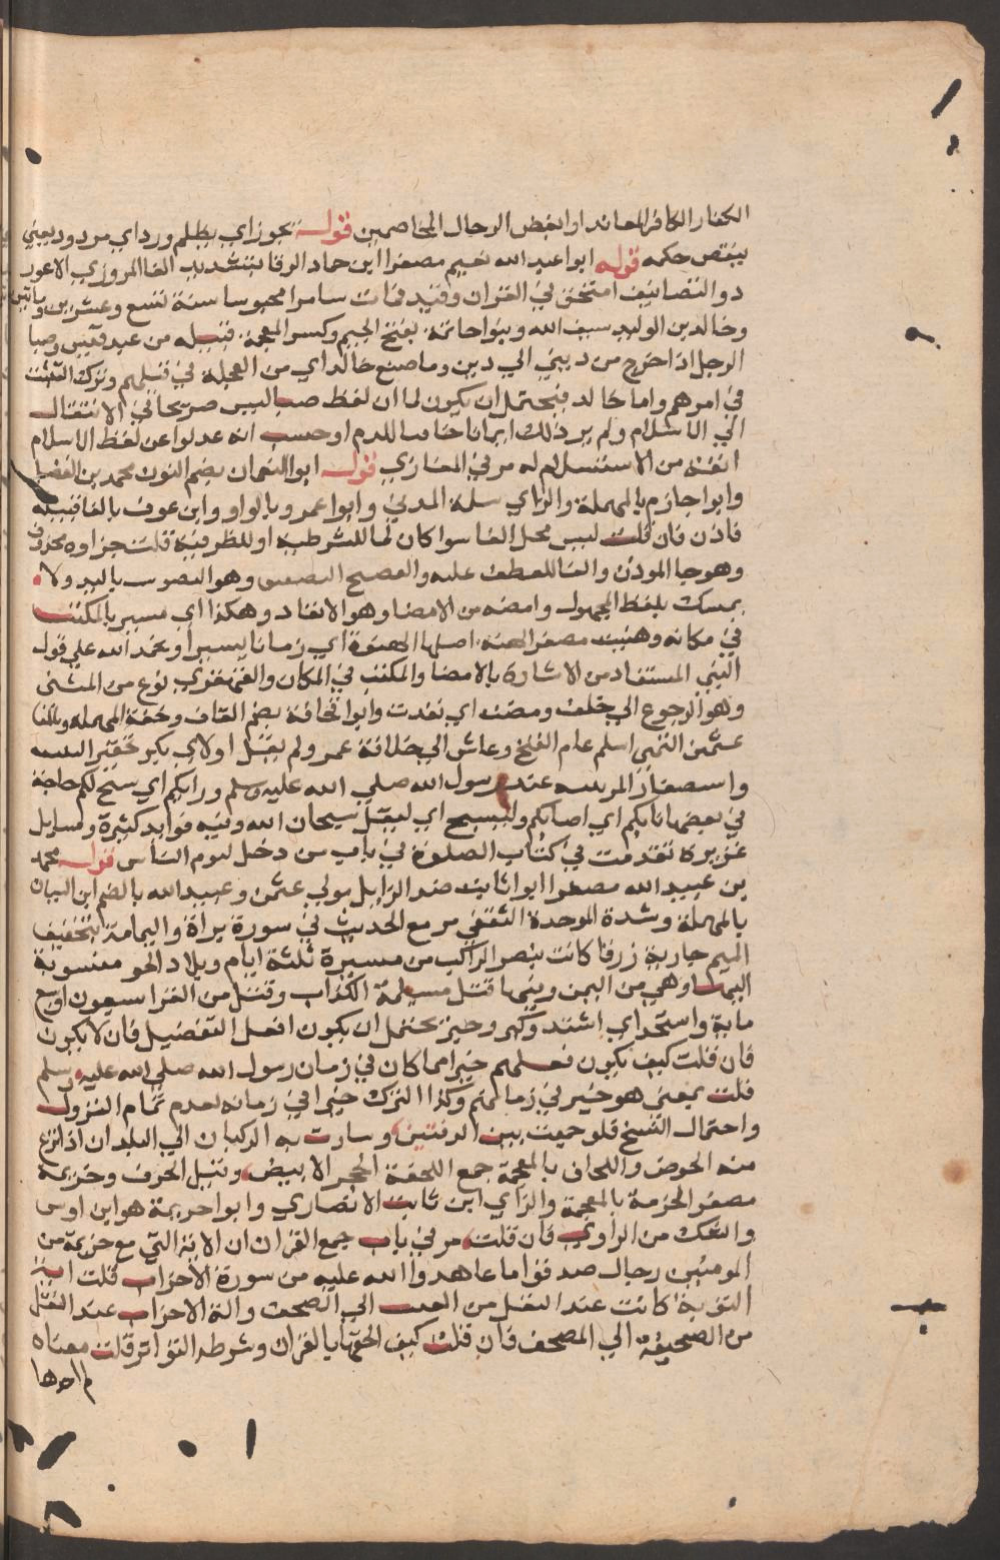 الكفار الكافر المعاند او ابغض الرجال المخاصمين قوله بجور اي بظلم ورد اي مردود يعني
ينقض حكمه قوله ابو عبد الله نعيم مصغرا ابن حماد الرفا بتشديد الفا المروزي الاعور
ذو التصانيف امتحن في القران وقيد فمات سامرا محبوسا سنة تسع وعشرين وماتين
وخالد بن الوليد سيف الله وبنوا جذيمة بفتح الجيم وكسر المعجمة قبيلة من عبد قيس وصبا
الرجل اذا خرج من دين الي دين وما صنع خالد اي من العجلة في قتلهم وترك التثبت
في امرهم واما خالد فيحتمل ان يكون لما ان لفظ صبا ليس صريحا في الانتقال
الي الاسلام ولم ير ذلك ايمانا حاقنا للدم او حسب انه عدلوا عن لفظ الاسلام
انفة من الاستسلام له مر في المغازي قوله ابو النعمان بضم النون محمد بن الفضل
وابوا حازم بالمهملة والزاي سلمة المدني وابوا عمرو بالواو وابن عوف بالفا قبيلة
فاذن فان قلت ليس محل الفا سوا كان لما للشرطية او للظرفية قلت جزاوه محذوف
وهو جا الموذن والفا للعطف عليه والفصيح التصفيق وهو التصويت باليد ولا
يمسك بلفظ المجهول وامضه من الامضا وهو الانفاد وهكذا اي مسير بالمكث
في مكانه وهنية مصغر الهنة اصلها الهنوة اي زمانا يسيرا ويحمد الله علي قول
النبي المستفاد من الاشارة بالامضا والمكث في المكان والقهقري نوع من المشي
وهو الرجوع الي خلف ومضت اي نفدت وابوا قحافة بضم القاف وخفة المهملة وبالفا
عثمن التيمي اسلم عام الفتح وعاش الي خلافة عمر ولم يقل او لابي بكر تحقيرا لنفسه
واستصغارا لمرتبته عند رسول الله صلي الله عليه وسلم ورابكم اي سنح لكم حاجة
في بعضها نابكم اي اصابكم وليسبح اي ليقل سبحان الله وفيه فوايد كثيرة ومسايل
غزيرة تقدمت في كتاب الصلوة في باب من دخل ليوم الناس قوله محمد
بن عبيد الله مصغرا ابوا ثابت ضد الزايل مولي عثمن وعبيد الله بالضم ابن السباق
بالمهملة وشدة الموحدة الثقفي مر مع الحديث في سورة براة واليمامة بتخفيف
الميم جارية زرقا كانت تبصر الراكب من مسيرة ثلثة ايام وبلاد الجو منسوبة
اليها وهي من اليمن وفيها قتل مسيلمة الكذاب وقتل من القرا سبعون او سبع
ماية واستحر اي اشتد وكثر وخير يحتمل ان يكون افعل التفضيل وان لا يكون
فان قلت كيف يكون فعلهم خيرا مما كان في زمان رسول الله صلي الله عليه وسلم
قلت يعني هو خير في زمانهم وكذا الترك خيرا في زمانه لعدم تمام النزول
واحتمال النسخ فلو جمعت بين الدفتين وسارت به الركبان الي البلدان
منه الخوض واللخاف بالمعجمة جمع اللخفة الحجر الابيض وقيل الخزف وخزيمة
مصغر الخزمة بالمعجمة والزاي ابن ثابت الانصاري وابوا خزيمة هو ابن اوس
والشك من الراوي فان قلت مر في باب جمع القران ان الاية التي مع خزيمة من
المومنين رجال صدقوا ما عاهدوا الله عليه من سورة الاحزاب قلت اية
التوبة كانت عند النقل من العسب الي الصحف واية الاحزاب عند النقل
من الصحيفة الي المصحف فان قلت كيف الحقها بالقران وشرطه التواتر قلت معناه
لم اجدها